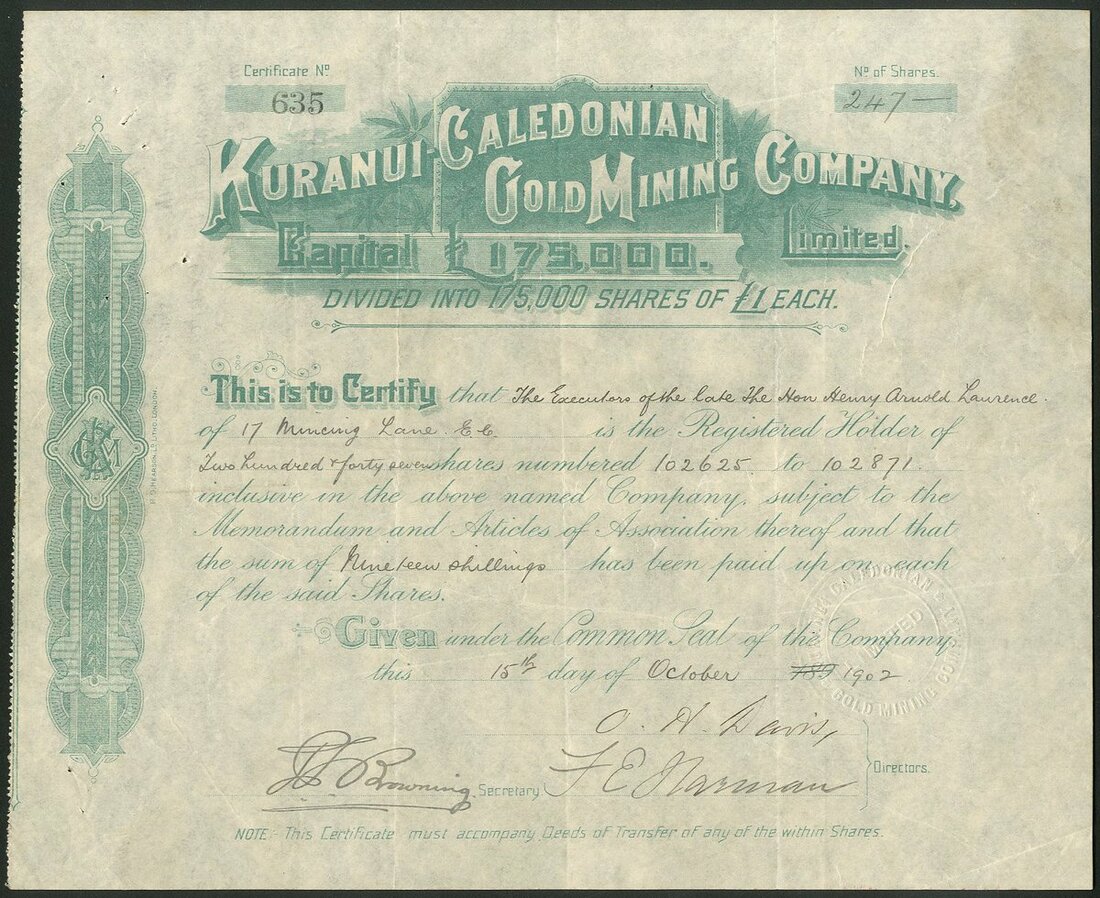 Certificate Nº
635
Nº of Shares.
247 —
KURANUI-CALEDONIAN
GOLD MINING COMPANY,
Limited.
Capital £175,000.
DIVIDED INTO 175,000 SHARES OF £1 EACH.
This is to Certify that The Executors of the late The Hon Henry Arnold Laurence.
of 17 Mincing Lane E.C. is the Registered Holder of
Two hundred & forty seven shares numbered 102625 to 102871.
inclusive in the above named Company, subject to the
Memorandum and Articles of Association thereof and that
the sum of Nineteen shillings has been paid up on each
of the said Shares.
Given under the Common Seal of the Company,
this 15th day of October 189 1902
O. H. Davis,
F E Harman
Directors.
Browning Secretary
NOTE:- This Certificate must accompany Deeds of Transfer of any of the within Shares.